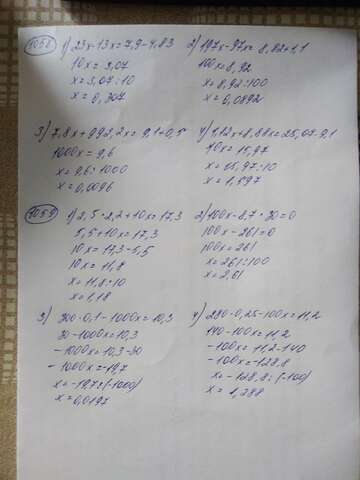 1058 1) 23x-13x=7,9-4,83
10x=3,07
x=3,07:10
x=0,307
2) 197x-97x=8,82+1,1
100x=8,92
x=8,92:100
x=0,0892
3) 7,8x+992,2x=9,1+0,5
1000x=9,6
x=9,6:1000
x=0,0096
4) 1,12x+8,88x=25,07-9,1
10x=15,97
x=15,97:10
x=1,597
1059 1) 2,5·2,2+10x=17,3
5,5+10x=17,3
10x=17,3-5,5
10x=11,8
x=11,8:10
x=1,18
2) 100x-8,7·30=0
100x-261=0
100x=261
x=261:100
x=2,61
3) 300·0,1-1000x=10,3
30-1000x=10,3
-1000x=10,3-30
-1000x=-19,7
x=-19,7:(-1000)
x=0,0197
4) 280·0,25-100x=11,2
140-100x=11,2
-100x=11,2-140
-100x=-128,8
x=-128,8:(-100)
x=1,288